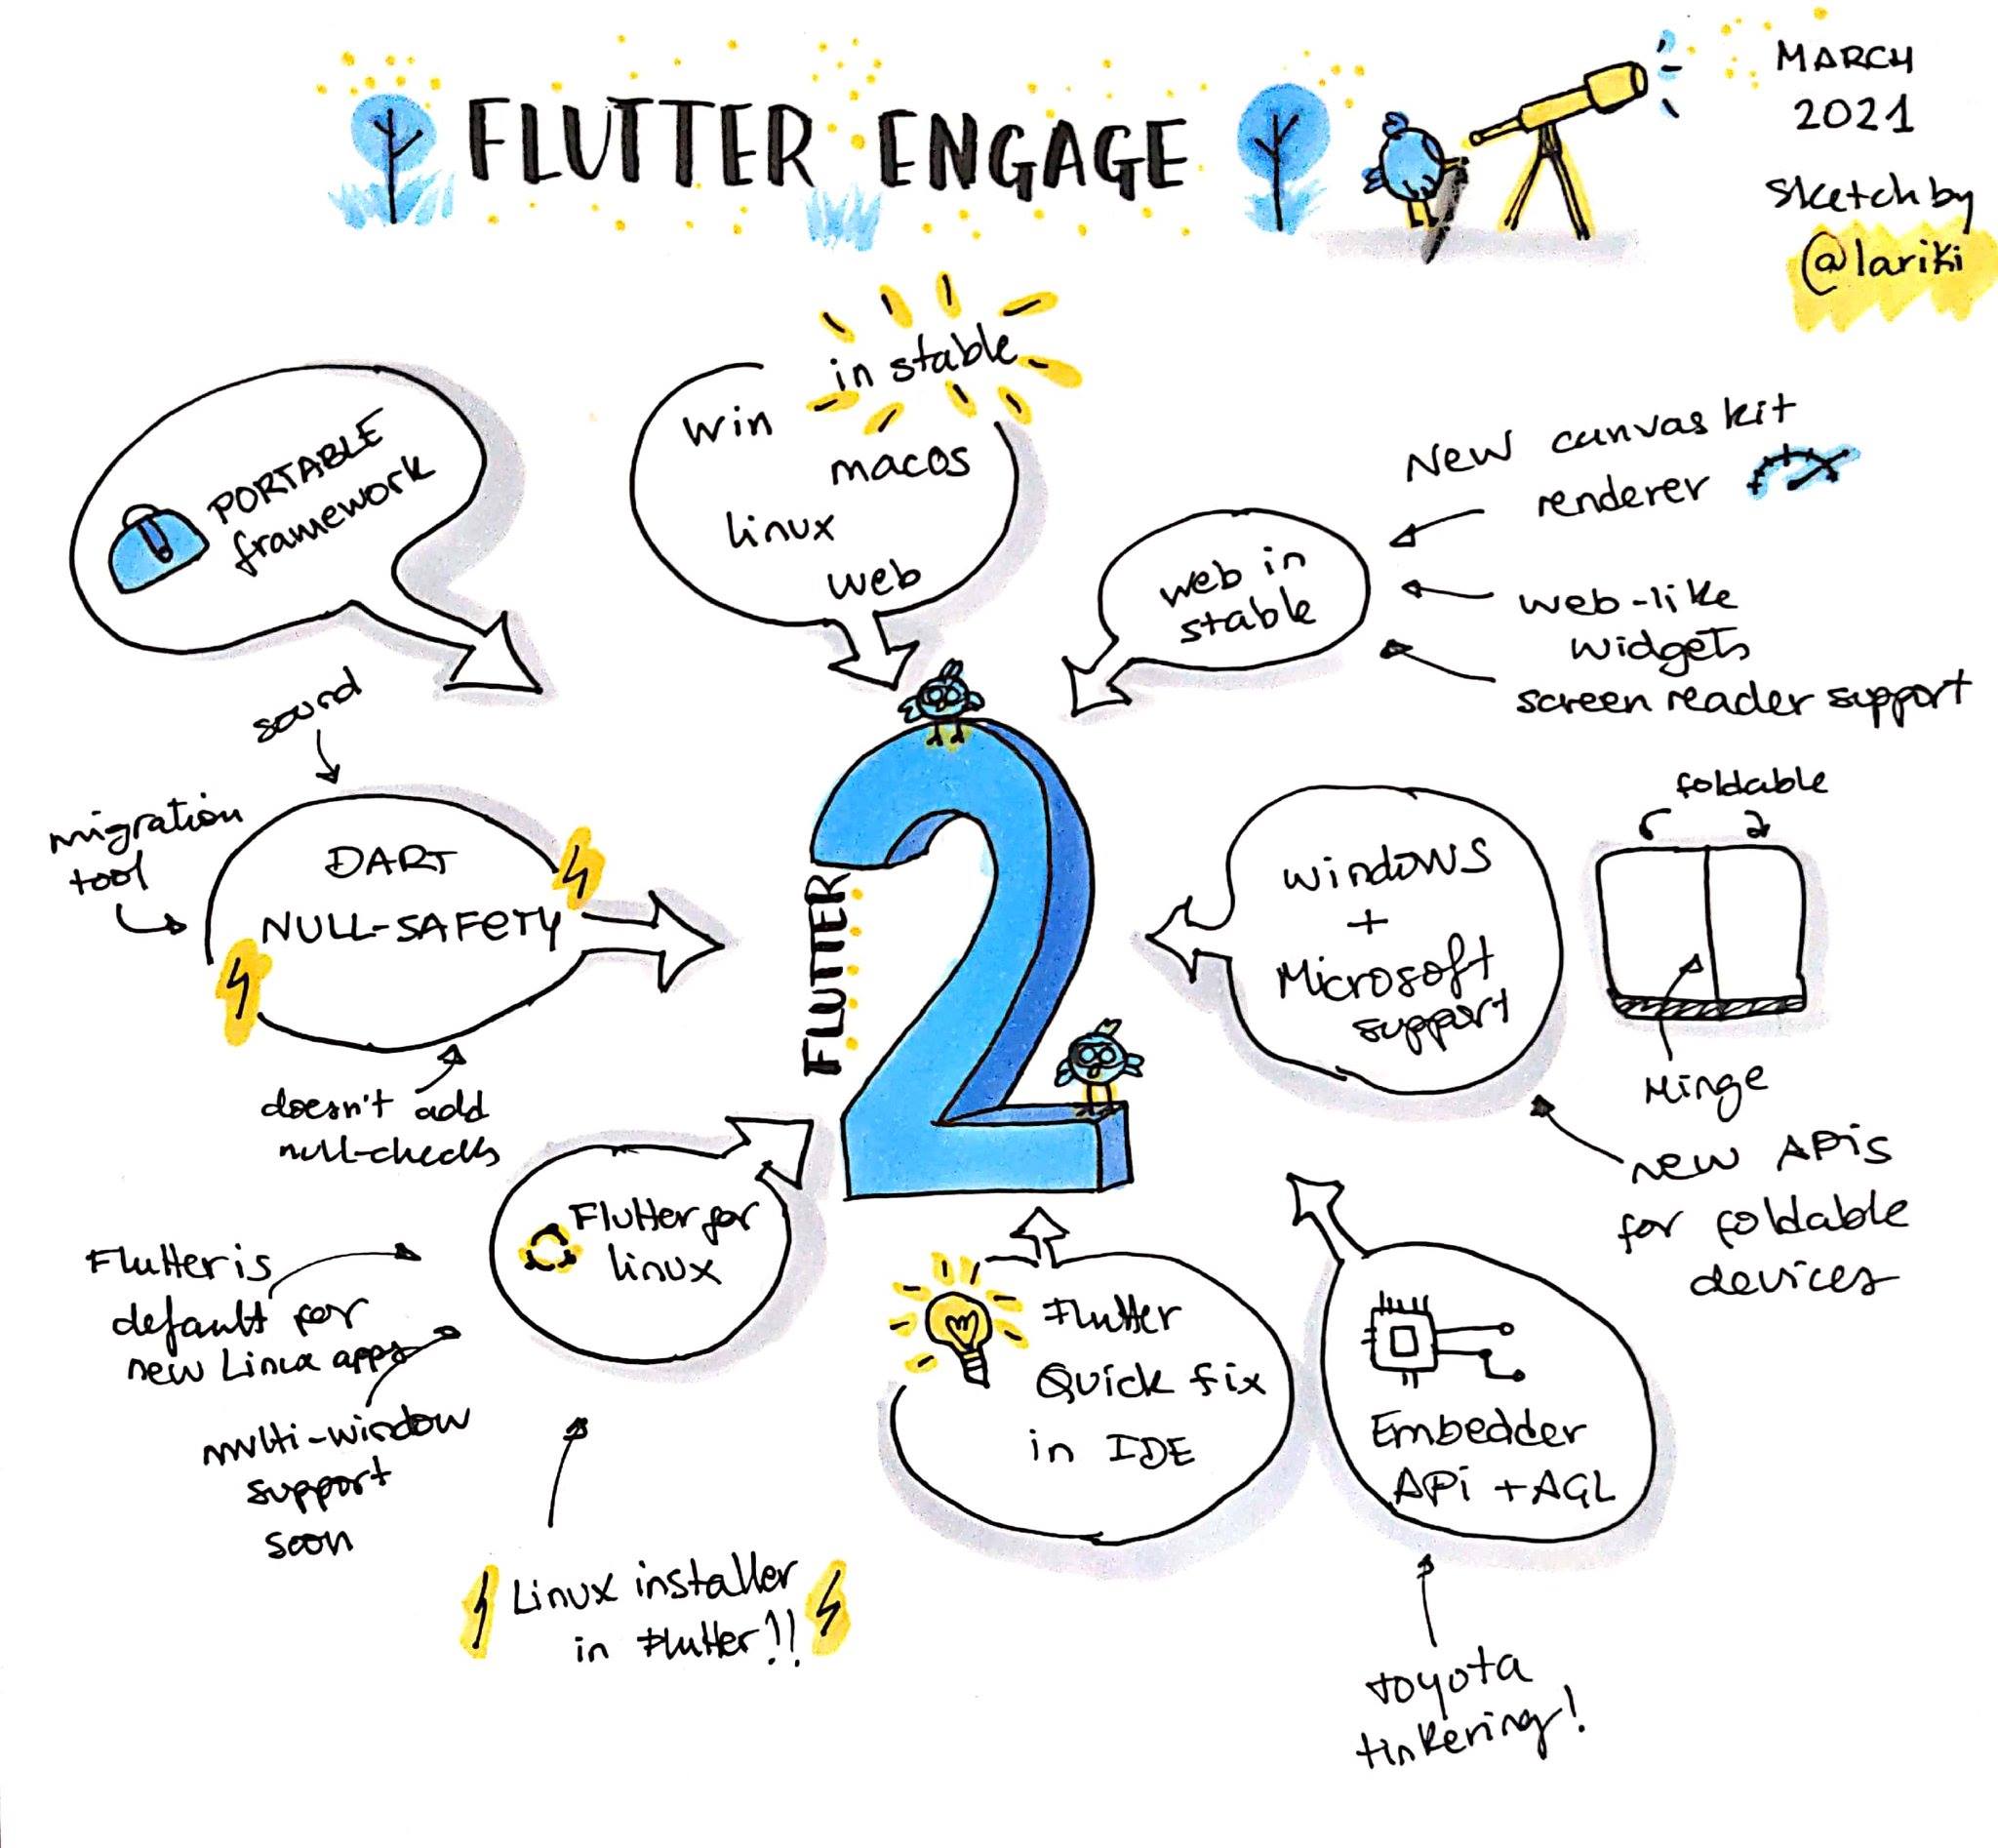 FLUTTER ENGAGE
MARCH
2021
sketch by
@lariki
PORTABLE
framework
in stable
win
macos
linux
web
web in
stable
New canvas kit
renderer
web-like
widgets
screen reader support
sound
migration
tool
DART
NULL-SAFETY
doesn't add
null-checks
FLUTTER
2
windows
+
Microsoft
support
foldable
Hinge
new APIs
for foldable
devices
Flutter for
linux
Flutter is
default for
new Linux apps
multi-window
support
soon
Linux installer
in Flutter!!
Flutter
Quick fix
in IDE
Embedder
API + AGL
toyota
tinkering!